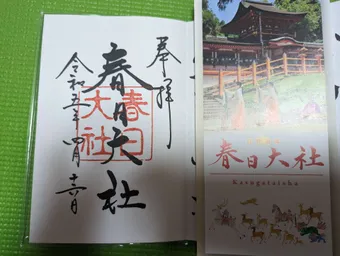 奉拝
春日大社
春日大社
令和五年四月十六日
春日大社
Kasugataisha